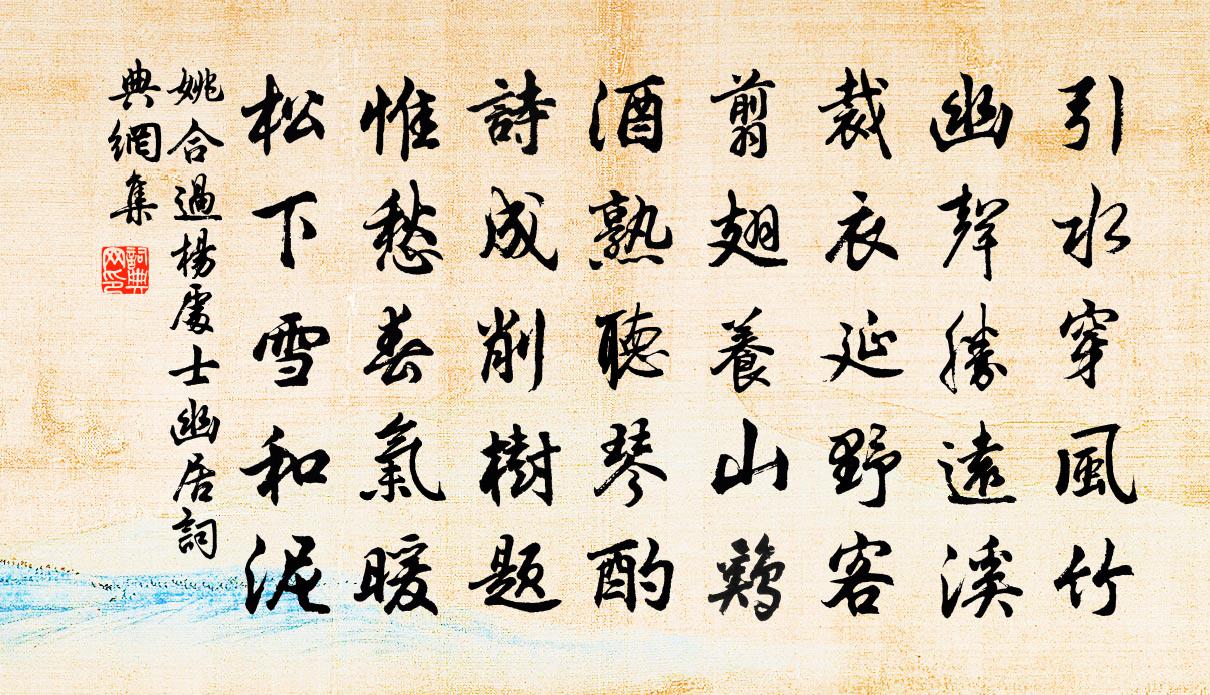 引水穿風竹
幽聲勝遠溪
裁衣延野客
翦翅養山鷄
酒熟聽琴酌
詩成削樹題
惟愁春氣暖
松下雪和泥
姚合過楊處士幽居詞
典網集
詞典
网印